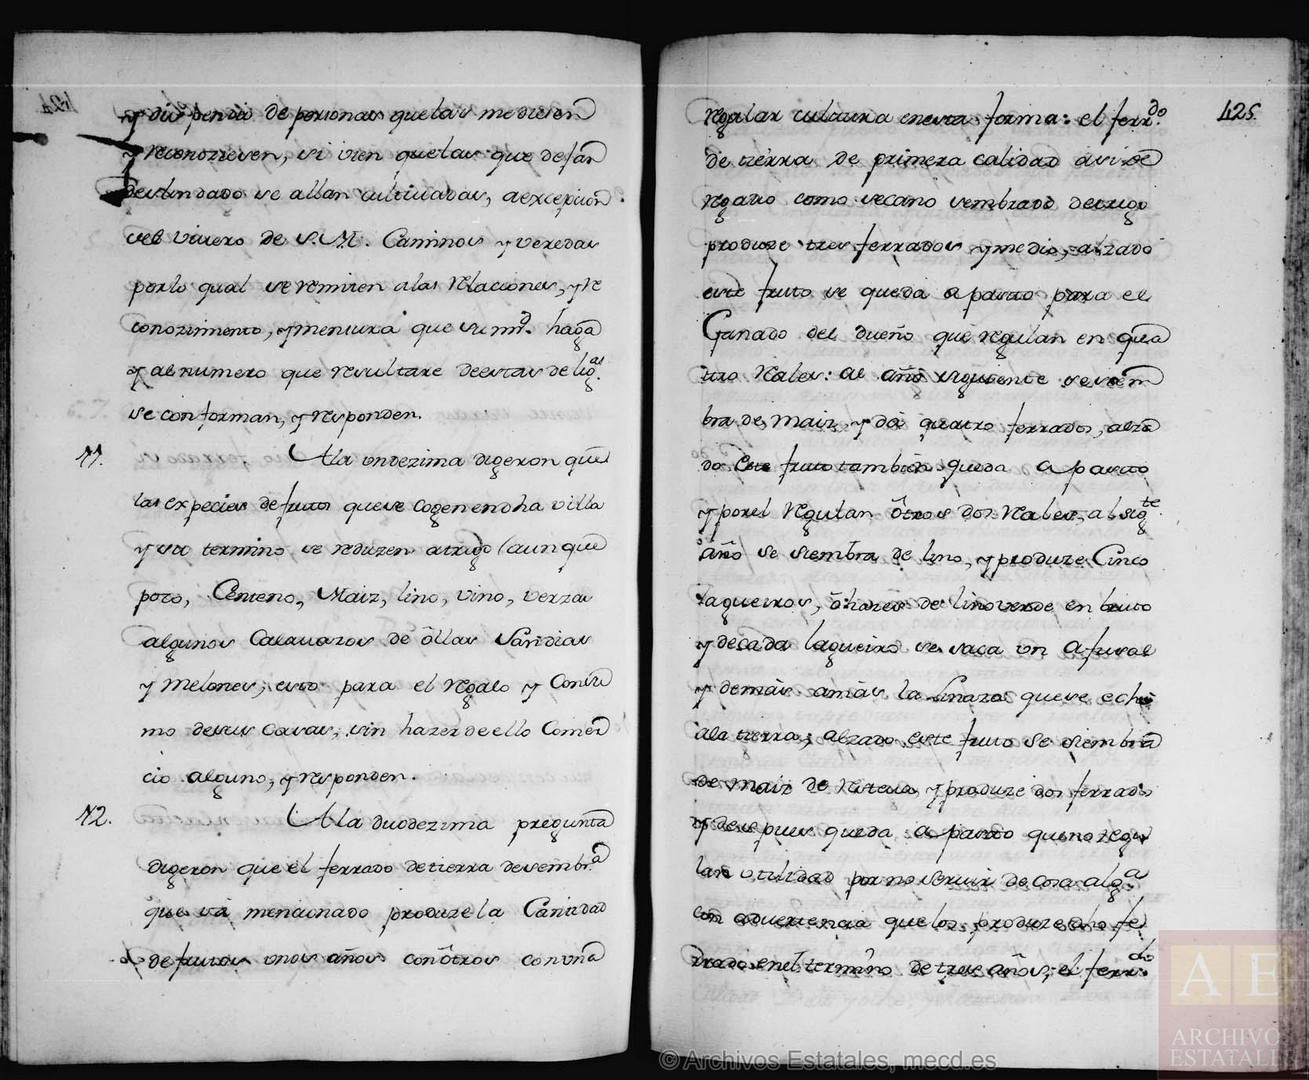 y dispendio de personas que las mediesen
y reconoziesen, si vien que las que dejan
deslindado se allan cultivadas, a excepcion
del vivero de S. M. Caminos y veredas
por lo qual se remiten a las relaciones, y re
conozimiento, y mensura que su md. haga
y al numero que resultare de estas delig.as
se conforman, y responden.
11. A la undezima digeron que
las especies de frutos que se cogen en dha villa
y su termino se reduzen a trigo (aunque
poco, Centeno, Maiz, lino, vino, verzas
algunos Calavazos de ôllas Sandias
y Melones, esto para el regalo y Consu
mo de sus Casas, sin hazer de ello Comer
cio alguno, y responden.
12. A la duodezima pregunta
digeron que el ferrado de tierra de sembr.a
que vá mencionado produze la Cantidad
de frutos unos años con ôtros con una
425
regular cultura en esta forma: el ferr.do
de tierra de primera calidad asi de
regadio como secano sembrado de trigo
produze tres ferrados y medio, alzado
este fruto se queda a pasto para el
Ganado del dueño que regulan en qua
ttro Reales: al año siguiente se siem
bra de Maiz y dá quatro ferrados, alza
do este fruto tambien queda a pasto
y por el regulan ôtros dos Reales, al sig.te
año se siembra de lino, y produze Cinco
laqueiros, ô hazes de lino verde en bruto
y de cada laqueiro se saca un afusal
y demás amás la linaza que se echó
a la tierra; alzado este fruto se siembra
de maiz de restreva, y produze dos ferrados
y despues queda a pasto que no regu
lan utilidad por no servir de cosa alg.a
con advertencia que los produze dho fe
rrado en el termino de tres años, el ferr.do
© Archivos Estatales, mecd.es
AE
ARCHIVOS
ESTATALES